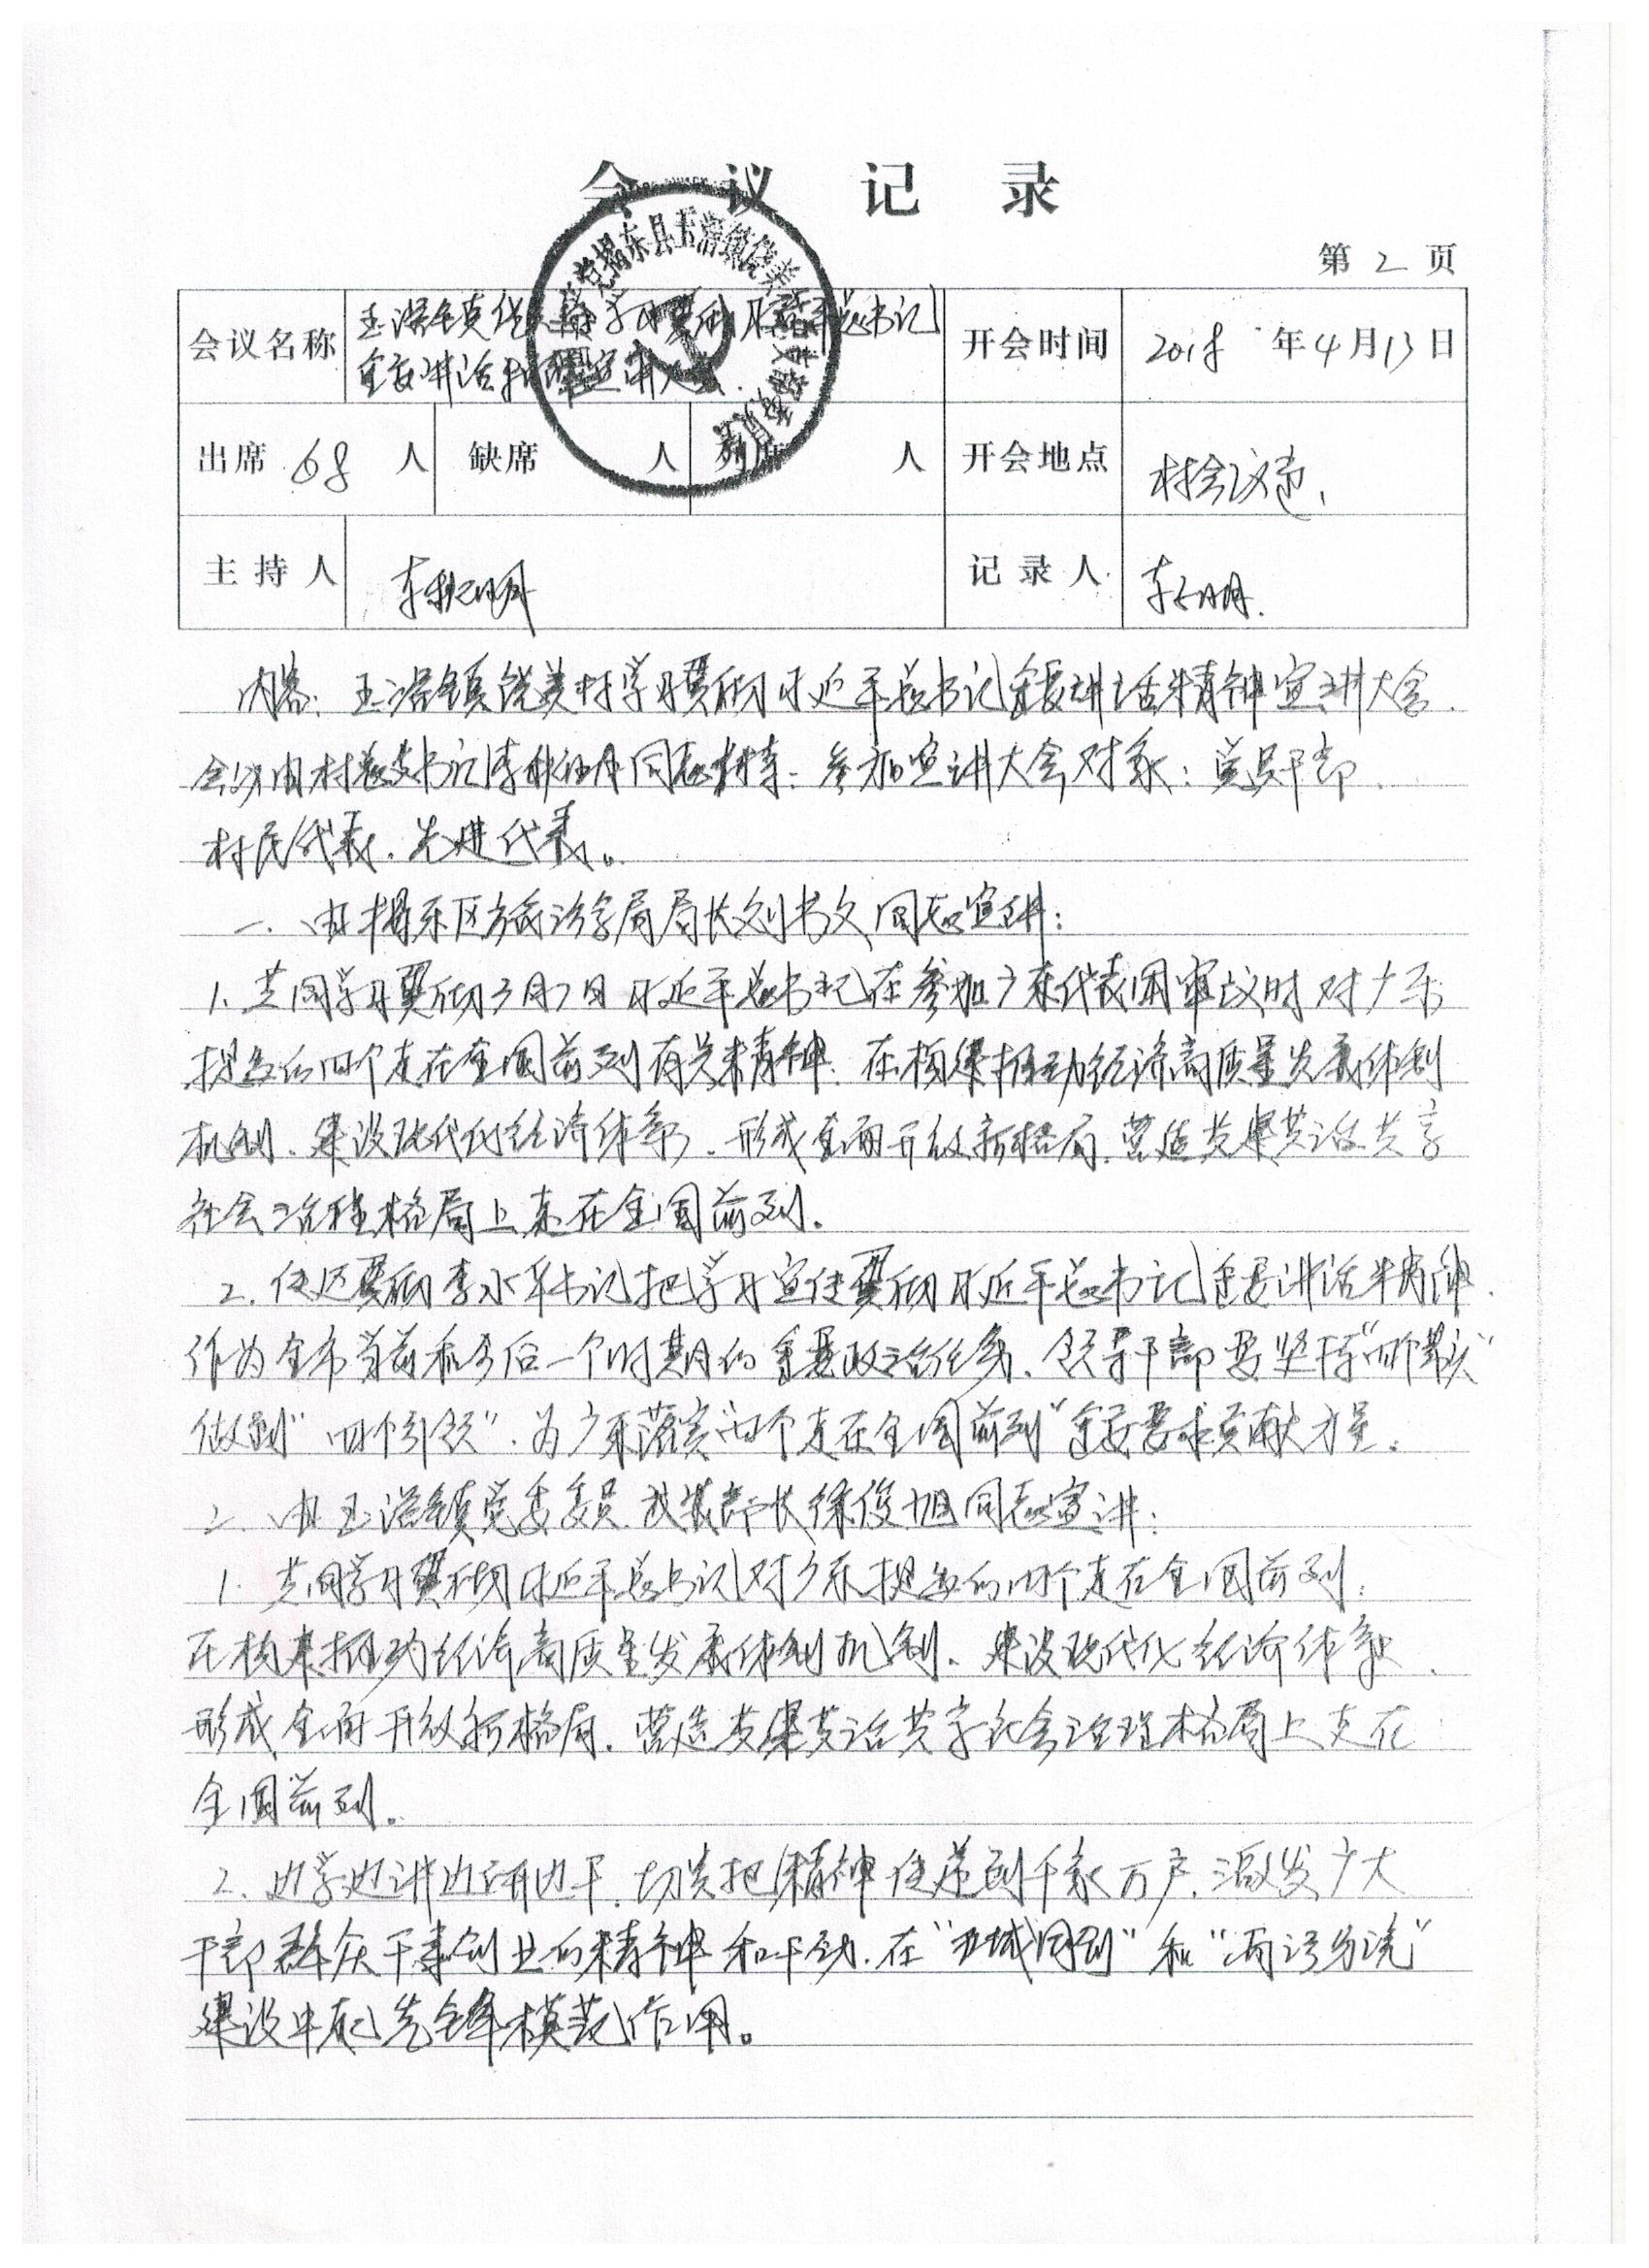 会议记录
第 2 页
会议名称 玉滘镇饶美村学习贯彻习近平总书记 开会时间 2018 年 4 月 13 日
重要讲话精神宣讲大会.
出席 68 人 缺席 人 列席 人 开会地点 村会议室
主持人 记录人
内容: 玉滘镇饶美村学习贯彻习近平总书记重要讲话精神宣讲大会.
会议由村总支书记 同志主持. 参加宣讲大会对象: 党员干部.
村民代表. 先进代表。
一. 由揭东区 局局长刘书文同志宣讲:
1. 共同学习贯彻3月7日习近平总书记在参加广东代表团审议时对广东
提出的四个走在全国前列有关精神. 在构建推动经济高质量发展体制
机制. 建设现代化经济体系. 形成全面开放新格局. 营造共建共治共享
社会治理格局上走在全国前列.
2. 传达贯彻李水华书记把学习宣传贯彻习近平总书记重要讲话精神.
作为全市当前和今后一个时期的重要政治任务. 领导干部要坚持“四个带头”
做到“四个引领”. 为广东落实“四个走在全国前列”重要要求贡献力量.
2. 由玉滘镇党委委员. 武装部长徐俊旭同志宣讲:
1. 共同学习贯彻习近平总书记对广东提出的四个走在全国前列:
在构建推动经济高质量发展体制机制. 建设现代化经济体系.
形成全面开放新格局. 营造共建共治共享社会治理格局上走在
全国前列。
2. 边学边讲边研边干. 切实把精神传递到千家万户. 激发广大
干部群众干事创业的精神和干劲. 在“ 同创”和“雨污分流”
建设中起先锋模范作用。